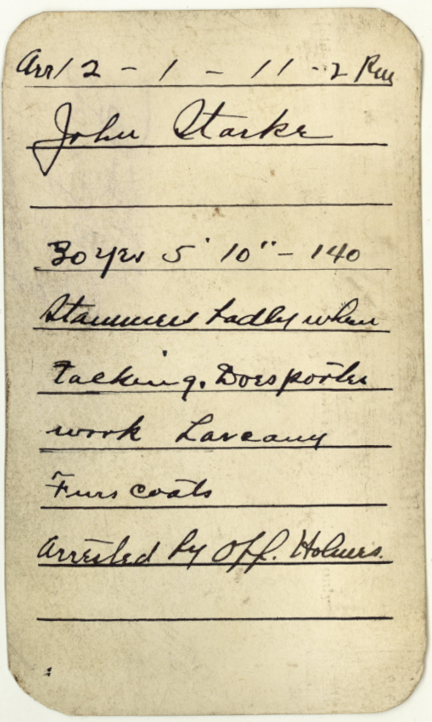 Arr/ 2 - 1 - 11 - 2 Pm
John Starke
30 yrs 5' 10" - 140
Stammers badly when
talking. Does porter
work Larceny
Furs coats
Arrested by Off. Holmes.